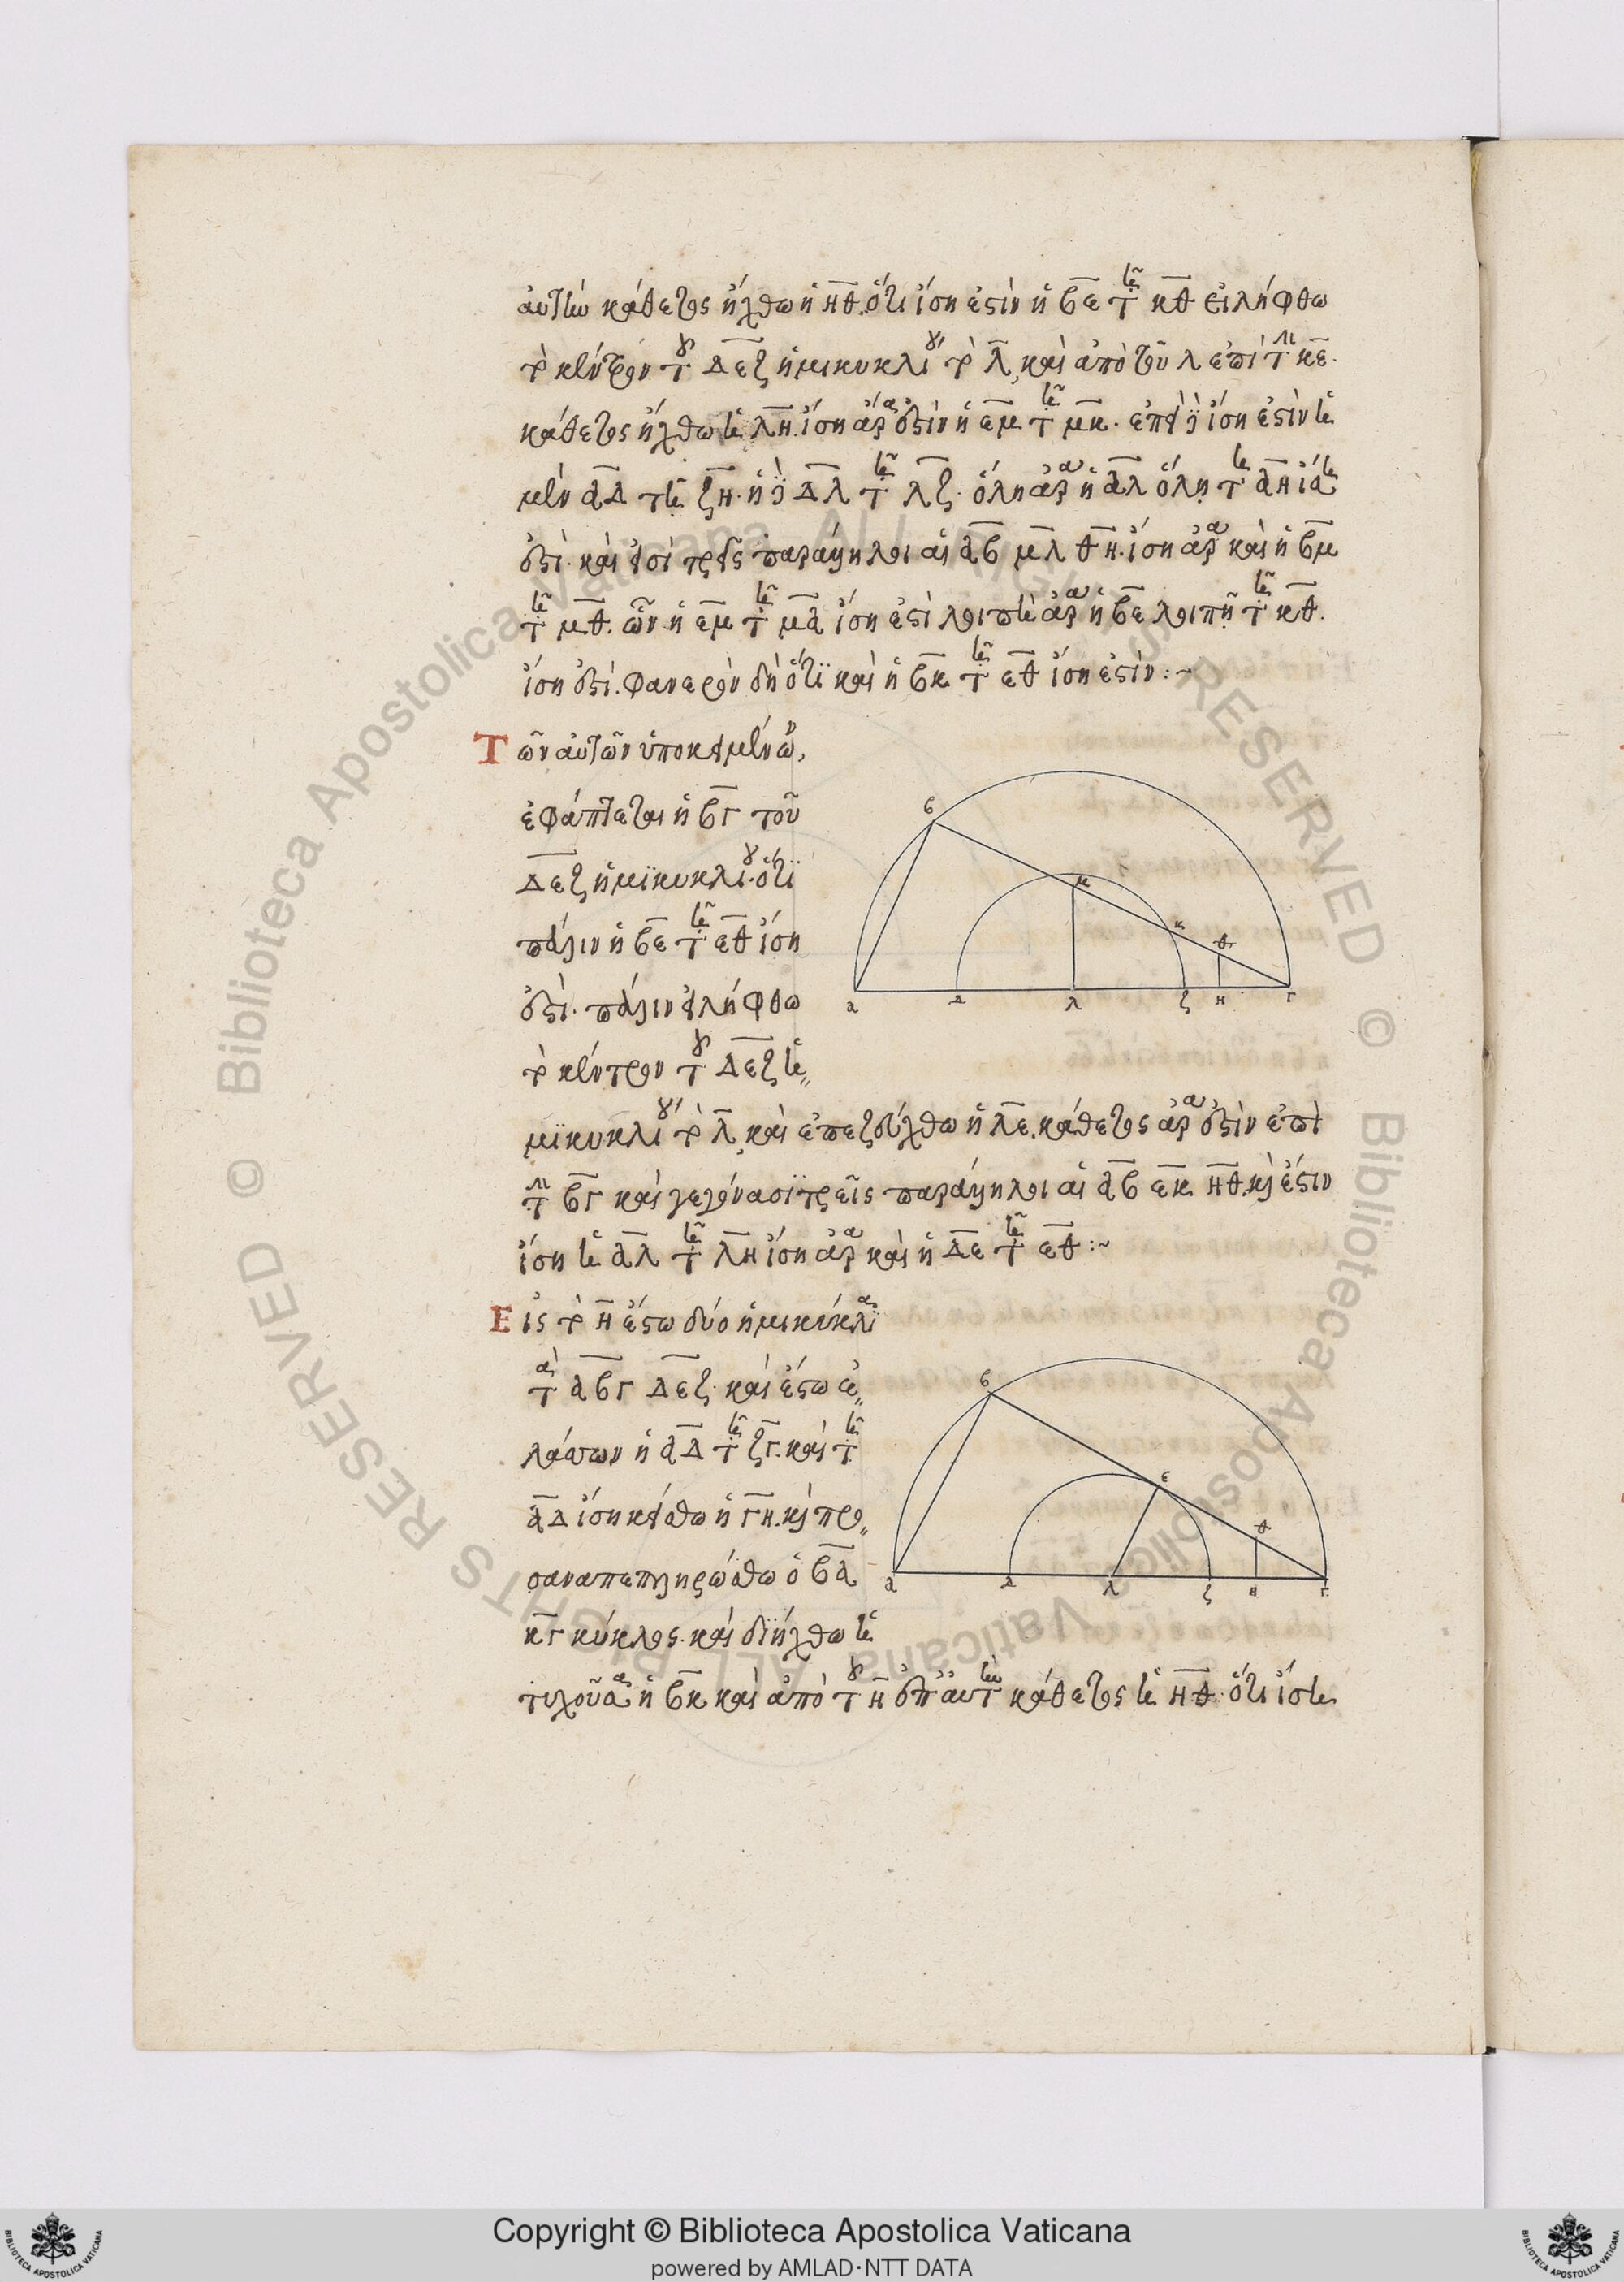 αὐτὴν κάθετος ἤχθω ἡ ΗΘ. ὅτι ἴση ἐστὶν ἡ ΒΕ τῆ ΚΘ εἰλήφθω
τὸ κέντρον τοῦ ΔΕΖ ἡμικυκλίου τὸ Λ, καὶ ἀπὸ τοῦ Λ ἐπὶ τὴν ΚΕ.
κάθετος ἤχθω ἡ ΛΗ. ἴση ἄρα ἐστὶν ἡ ΕΜ τῆ ΜΚ. ἐπεὶ δὲ ἴση ἐστὶν ἡ
μὲν ΑΔ τῆ ΖΗ. ἡ δὲ ΔΛ τῆ ΛΖ. ὅλη ἄρα ἡ ΑΛ ὅλη τῆ ΛΗ ἴση
ἐστί. καὶ εἰσὶ τρεῖς παράλληλοι αἱ ΑΒ ΜΛ ΘΗ. ἴση ἄρα καὶ ἡ ΒΜ
τῆ ΜΘ. ὧν ἡ ΕΜ τῆ ΜΑ ἴση ἐστὶ λοιπὴ ἄρα ἡ ΒΕ λοιπῆ τῆ ΚΘ.
ἴση ἐστί. φανερὸν δὴ ὅτι καὶ ἡ ΒΚ τῆ ΕΘ ἴση ἐστίν :~
Τῶν αὐτῶν ὑποκειμένων,
ἐφάπτεται ἡ ΒΓ τοῦ
ΔΕΖ ἡμικυκλίου. ὅτι
πάλιν ἡ ΒΕ τῆ ΕΘ ἴση
ἐστί. πάλιν εἰλήφθω
τὸ κέντρον τοῦ ΔΕΖ ἡ
μικυκλίου τὸ Λ, καὶ ἐπεζεύχθω ἡ ΛΕ. κάθετος ἄρα ἐστὶν ἐπὶ
τὴν ΒΓ καὶ γεγόνασι τρεῖς παράλληλοι αἱ ΑΒ ΕΚ ΗΘ. καὶ ἔστιν
ἴση ἡ ΑΛ τῆ ΛΗ ἴση ἄρα καὶ ἡ ΔΕ τῆ ΕΘ :~
Εἰς τὸ Η ἔστω δύο ἡμικύκλια
τὰ ΑΒΓ ΔΕΖ. καὶ ἔστω ἐ
λάσσων ἡ ΑΔ τῆ ΖΓ. καὶ τῆ
ΑΔ ἴση κείσθω ἡ ΓΗ. καὶ προ
σαναπεπληρώσθω ὁ ΒΑ
ΚΓ κύκλος. καὶ διήχθω ἡ
τυχοῦσα ἡ ΒΚ καὶ ἀπὸ τοῦ Η ἐπ' αὐτὴν κάθετος ἡ ΗΘ. ὅτι ἴση
Β
Μ
Κ
Θ
Α
Δ
Λ
Ζ
Η
Γ
Β
Ε
Θ
Α
Δ
Λ
Ζ
Η
Γ
© Biblioteca Apostolica Vaticana ALL RIGHTS RESERVED
© Biblioteca Apostolica Vaticana ALL RIGHTS RESERVED
Copyright © Biblioteca Apostolica Vaticana
powered by AMLAD·NTT DATA
BIBLIOTECA APOSTOLICA VATICANA
BIBLIOTECA APOSTOLICA VATICANA